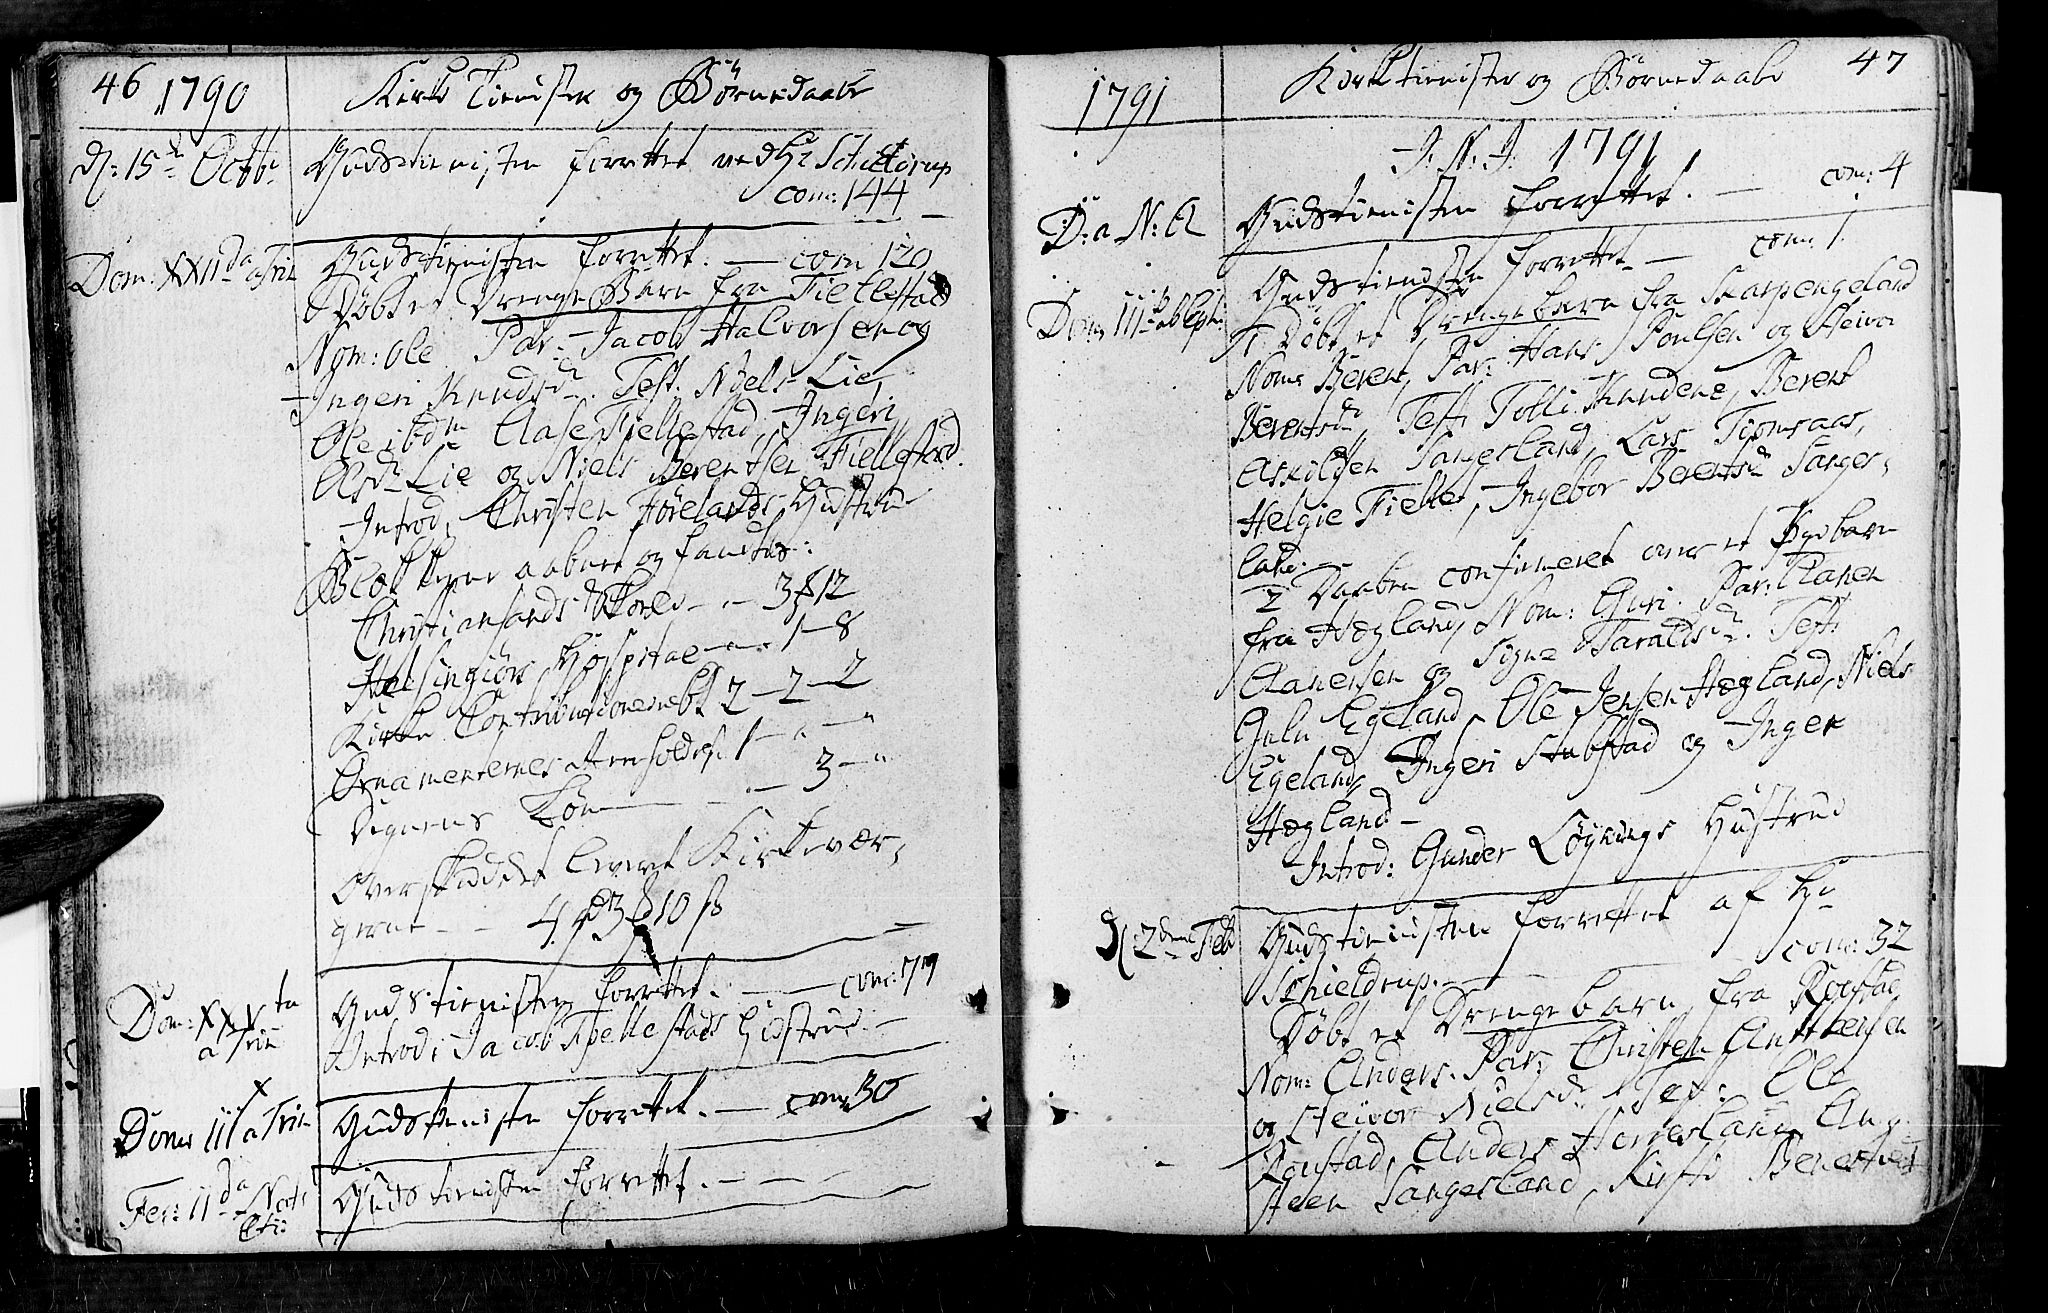 46 1790
Kirke Tienister og Børnedaab
d: 15de Octbr
Gudstienisten forrettet ved Hr Schieldrup
com: 144
Dom. XXIIda a Trin
Gudstienisten forrettet. — com 120
Døbt et Drenge Barn fra Tiellestad
Nom: Ole Par: Jacob Halvorsen og
Ingeri Knudsd. Test. Niels Lie,
Ole ibdm Aase Tiellestad, Ingeri
Olsd Lie og Niels Berentsen Fiellestad.
Introd, Christen Førelands Hustrue
Blokken aabnet og fandtes:
Christiansands Skoles — 3 12
Helsingiørs Hospital — 1 — 8
Kirke Contributionerne 2 — 2 — 2
Ornamenternes 1 — " — "
Degnens Løn — 3 — "
Overskuddet leveret Kirkevær-
gerne — 4 3 10 s
Dom: XXVta
a Trin
Gudstienisten forrettet. — com: 77
Introd: Jacob Tiellestads Hustrue. —
Dom III a Trin
Gudstienisten forrettet. — com 30
Fer: IIda Nati
Gudstienisten forrettet. — —
1791
Kirketienister og Børnedaab
47
I. N. J. 1791
D: a N: A
Gudstienisten forrettet. — com: 4
Dom IIItia ab Eph:
Gudstienisten forrettet — com. 1.
1 Døbt et Drengebarn fra Skarpengeland
Nom Berent, Par: Hans Poulsen og Heivor
Berentsd, Test: Tolli Knudene, Berent
Askilsen Sangesland, Lars Tiomsaas,
Helgie Fielle, Ingebor Berentsd Sanges-
land.
2 Daaben confirmeret over et Pigebarn
fra Hægland, Nom: Guri. Par: Aanen
Aanensen og Signe Taraldsd. Test:
Egeland, Ole Jensen Hægland, Niels
Egeland, Ingeri Stubstad og Inger
Hægland —
Introd: Gunder Løynings Hustrue
Gudstienisten forrettet af Hr
Schieldrup. — com: 32
Døbt et Drengebarn fra Roustad
Nom: Anders. Par: Christen Antthensen
og Heivor Nielsd Test: Ole
Roustad, Anders Homesland, Aug-
Sangesland, Kirsti